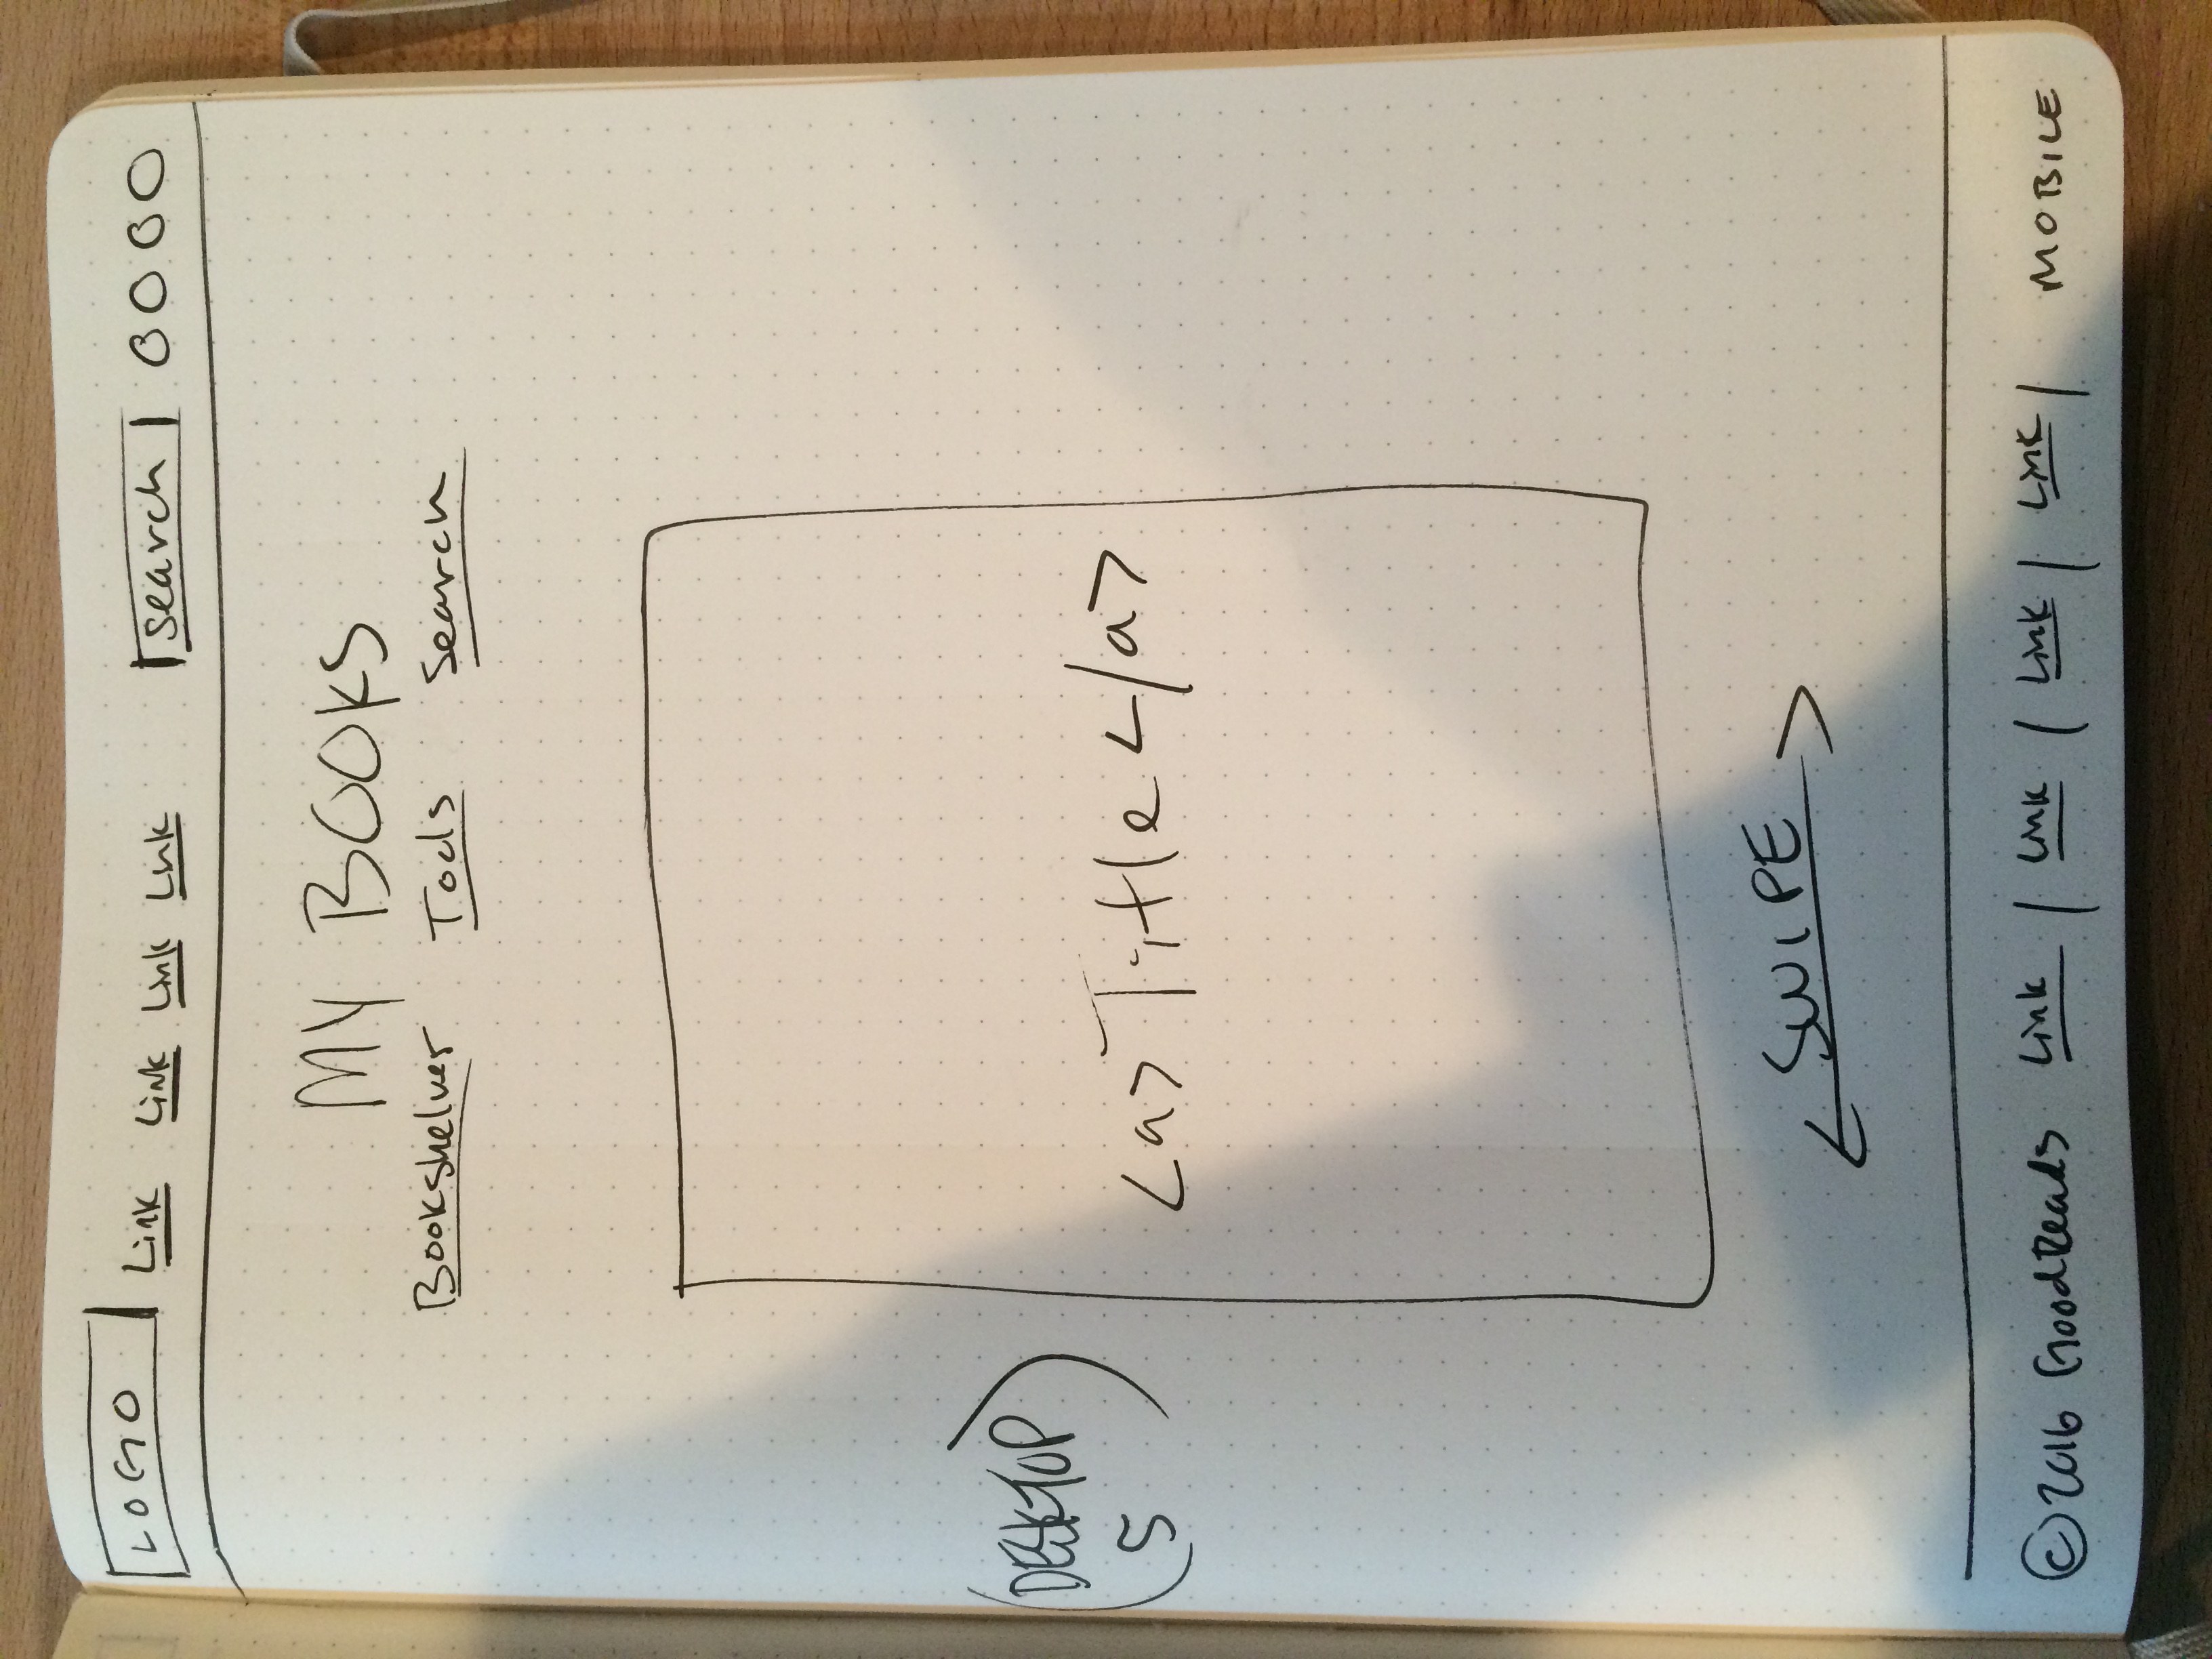 LOGO Link Link Link Link Search OOOO
MY BOOKS
Bookshelves Tools Search
(DESKTOP
5)
<a>Title</a>
<SWIPE>
©2016 GoodReads Link | Link | Link | Link | MOBILE